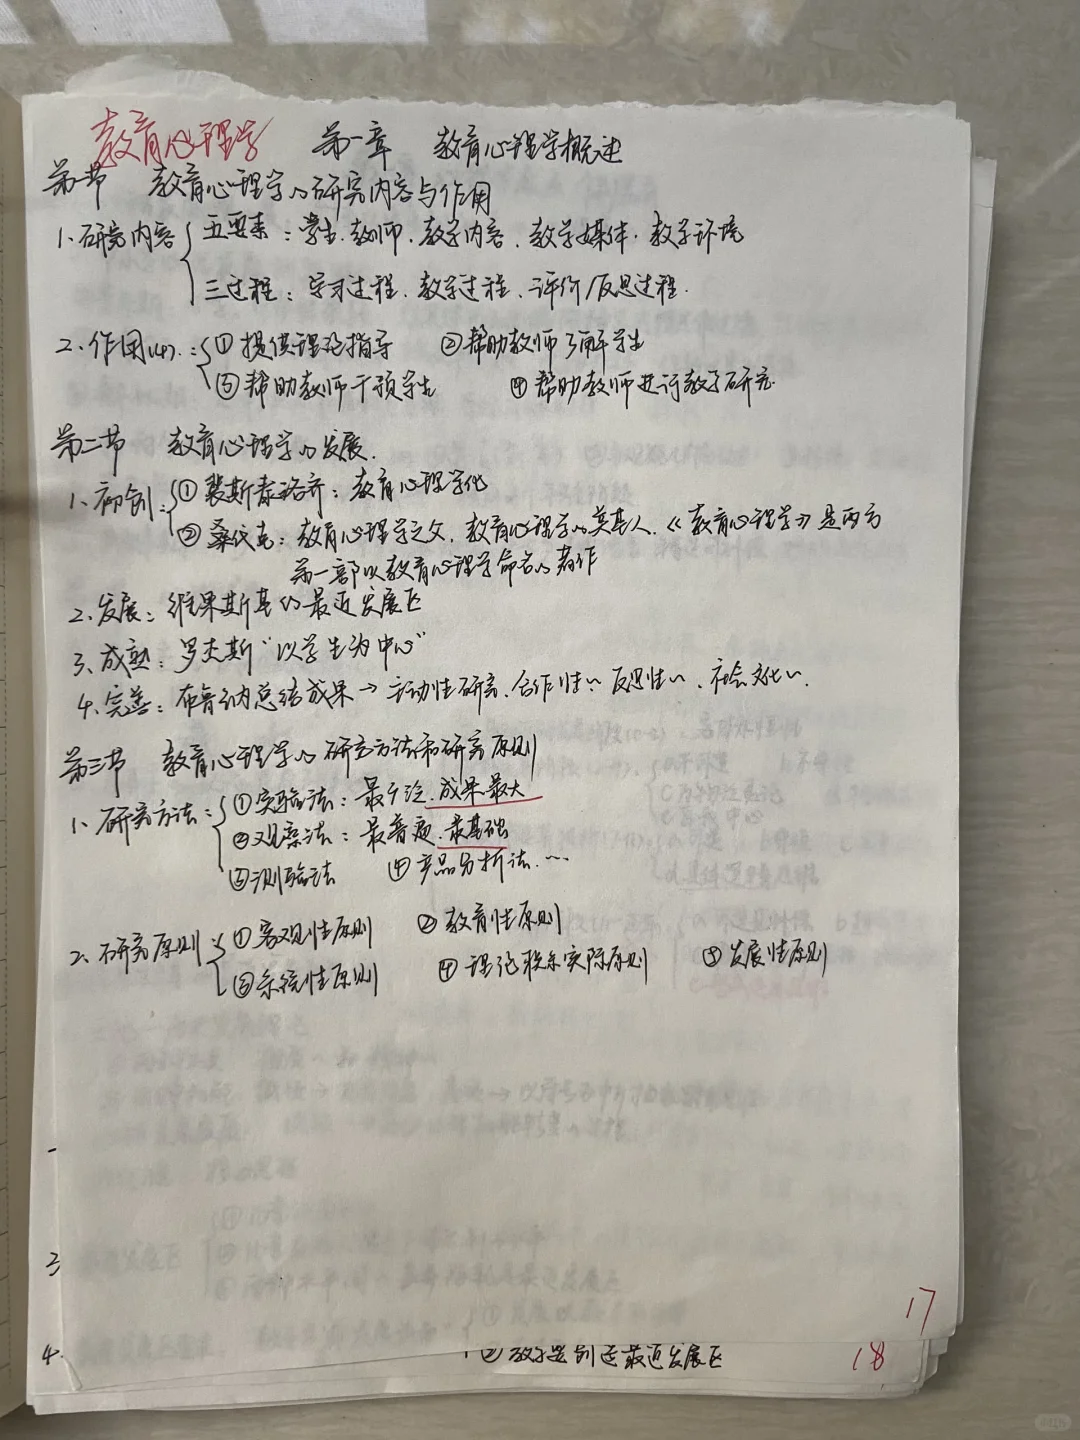 教育心理学 第一章 教育心理学概述
第一节 教育心理学の研究内容与作用
1、研究内容 五要素：学生、教师、教学内容、教学媒体、教学环境
三过程：学习过程、教学过程、评价/反思过程.
2、作用(4)：①提供理论指导 ②帮助教师了解学生
③帮助教师干预学生 ④帮助教师进行教学研究.
第二节 教育心理学の发展.
1、初创：①裴斯泰洛齐：教育心理学化
②桑代克：教育心理学之父、教育心理学の奠基人、《教育心理学》是西方
第一部以教育心理学命名の著作
2、发展：维果斯基の最近发展区
3、成熟：罗杰斯“以学生为中心”
4、完善：布鲁纳总结成果→主动性研究、合作性〃 反思性〃、社会文化〃.
第三节 教育心理学の研究方法和研究原则
1、研究方法：①实验法：最严谨、成果最大
②观察法：最普遍、最基础
③测验法 ④产品分析法、…
2、研究原则 ①客观性原则 ②教育性原则
③系统性原则 ④理论联系实际原则 ⑤发展性原则
3
17
4.
②教学是创造最近发展区
18